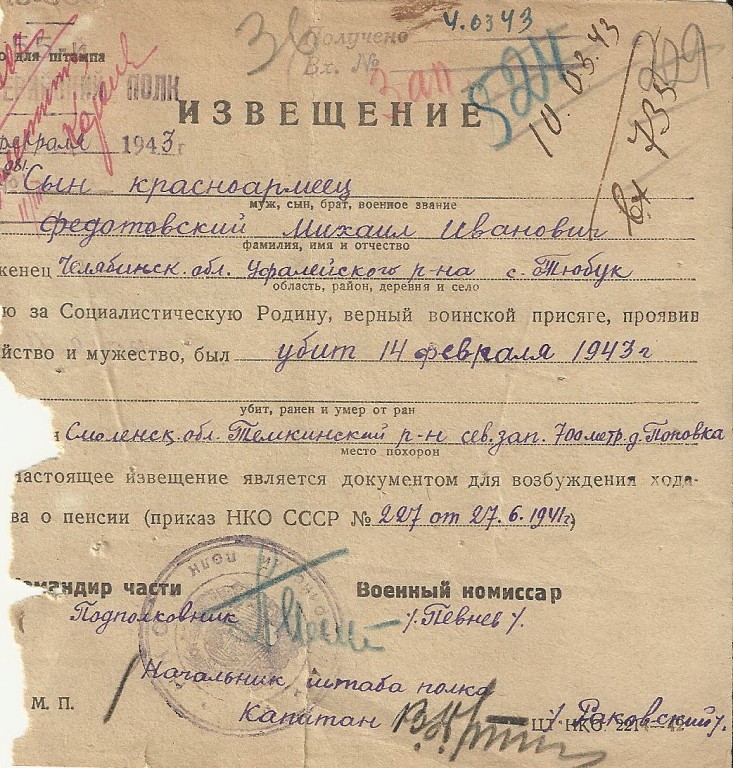 Получено
Ч.0343
о для штампа
Вх. №
524
10.03.43
209
вх 733
Зап
ПОЛК
ИЗВЕЩЕНИЕ
февраля 1943 г
Сын красноармеец
муж, сын, брат, военное звание
Федотовский Михаил Иванович
фамилия, имя и отчество
женец Челябинск. обл. Уфалейского р-на с. Тюбук
область, район, деревня и село
ю за Социалистическую Родину, верный воинской присяге, проявив
йство и мужество, был убит 14 февраля 1943 г
убит, ранен и умер от ран
н Смоленск. обл. Темкинский р-н сев. зап. 700 метр. д. Поповка
место похорон
настоящее извещение является документом для возбуждения хода-
ва о пенсии (приказ НКО СССР № 227 от 27.6.1941г)
омандир части Военный комиссар
Подполковник /Певнев/.
Начальник штаба полка
М. П. Капитан /Раковский/.
НКО. 221